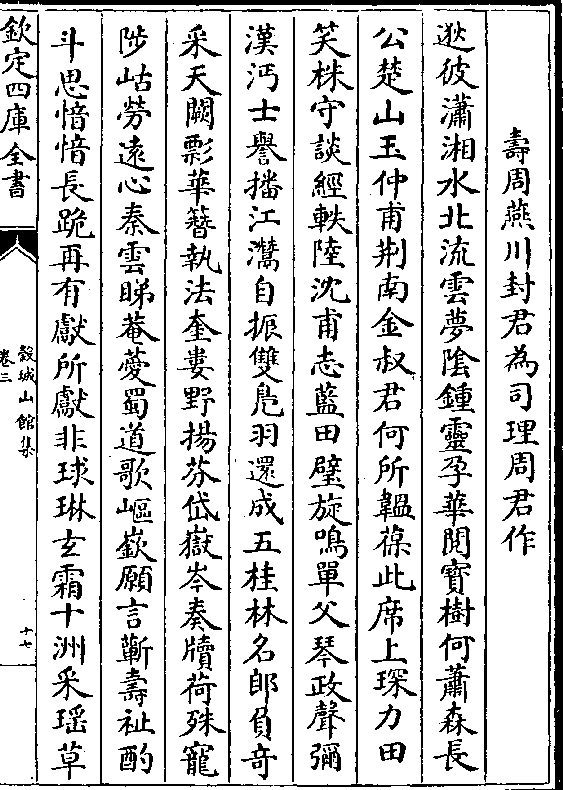 壽周燕川封君為司理周君作
逖彼瀟湘水北流雲夢陰鍾靈孕華閥寶樹何蕭森長
公楚山玉仲甫荆南金叔君何所韞葆此席上琛力田
笑株守談經軼陸沈甫志藍田璧旋鳴單父琴政聲彌
漢沔士譽播江灊自振雙鳬羽還成五桂林名郎負竒
采天闕影華簪執法奎婁野揚芬岱嶽岑奏牘荷殊寵
陟岵勞遠心秦雲睇菴薆蜀道歌嶇嶔願言蘄壽祉酌
斗思愔愔長跪再有獻所獻非球琳玄霜十洲采瑶草
欽定四庫全書
穀城山館集
卷三
十七